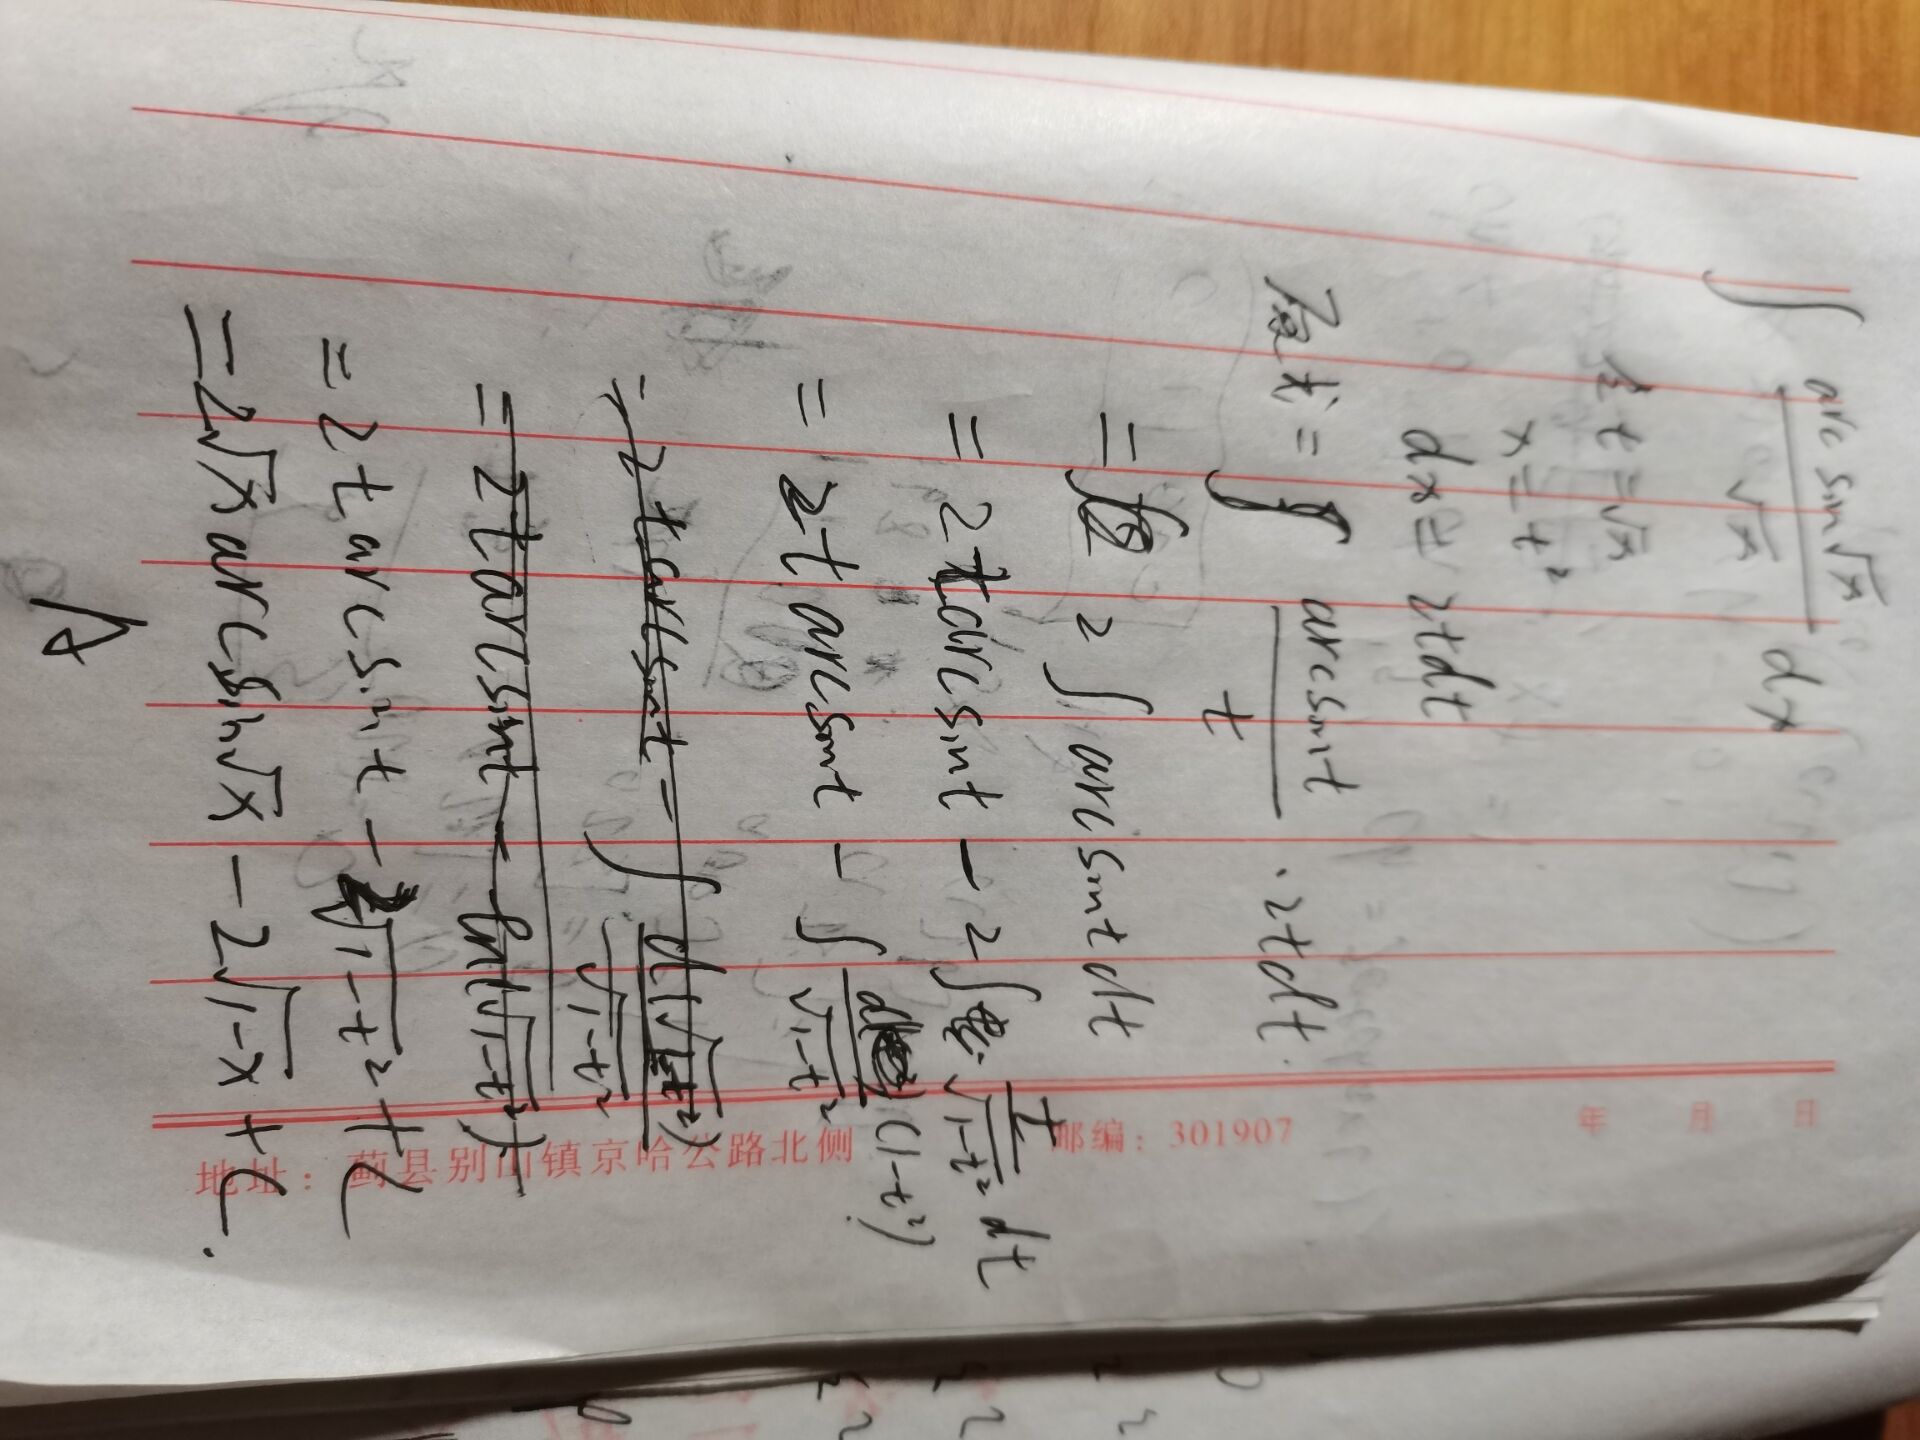 ∫ arcsin√x / √x dx
令 t=√x
x=t²
dx=2tdt
原式=∫ arcsint / t · 2tdt.
= 2∫arcsintdt
= 2tarcsint - 2∫ t/√1-t² dt
= 2tarcsint - ∫ d(1-t²) / √1-t²
= 2tarcsint = ∫ d(√1-t²) / √1-t²
= 2tarcsint - ln(√1-t²)
= 2tarcsint - 2√1-t² + C
= 2√x arcsin√x - 2√1-x + C.
年 月 日
邮编：301907
地址：蓟县别山镇京哈公路北侧